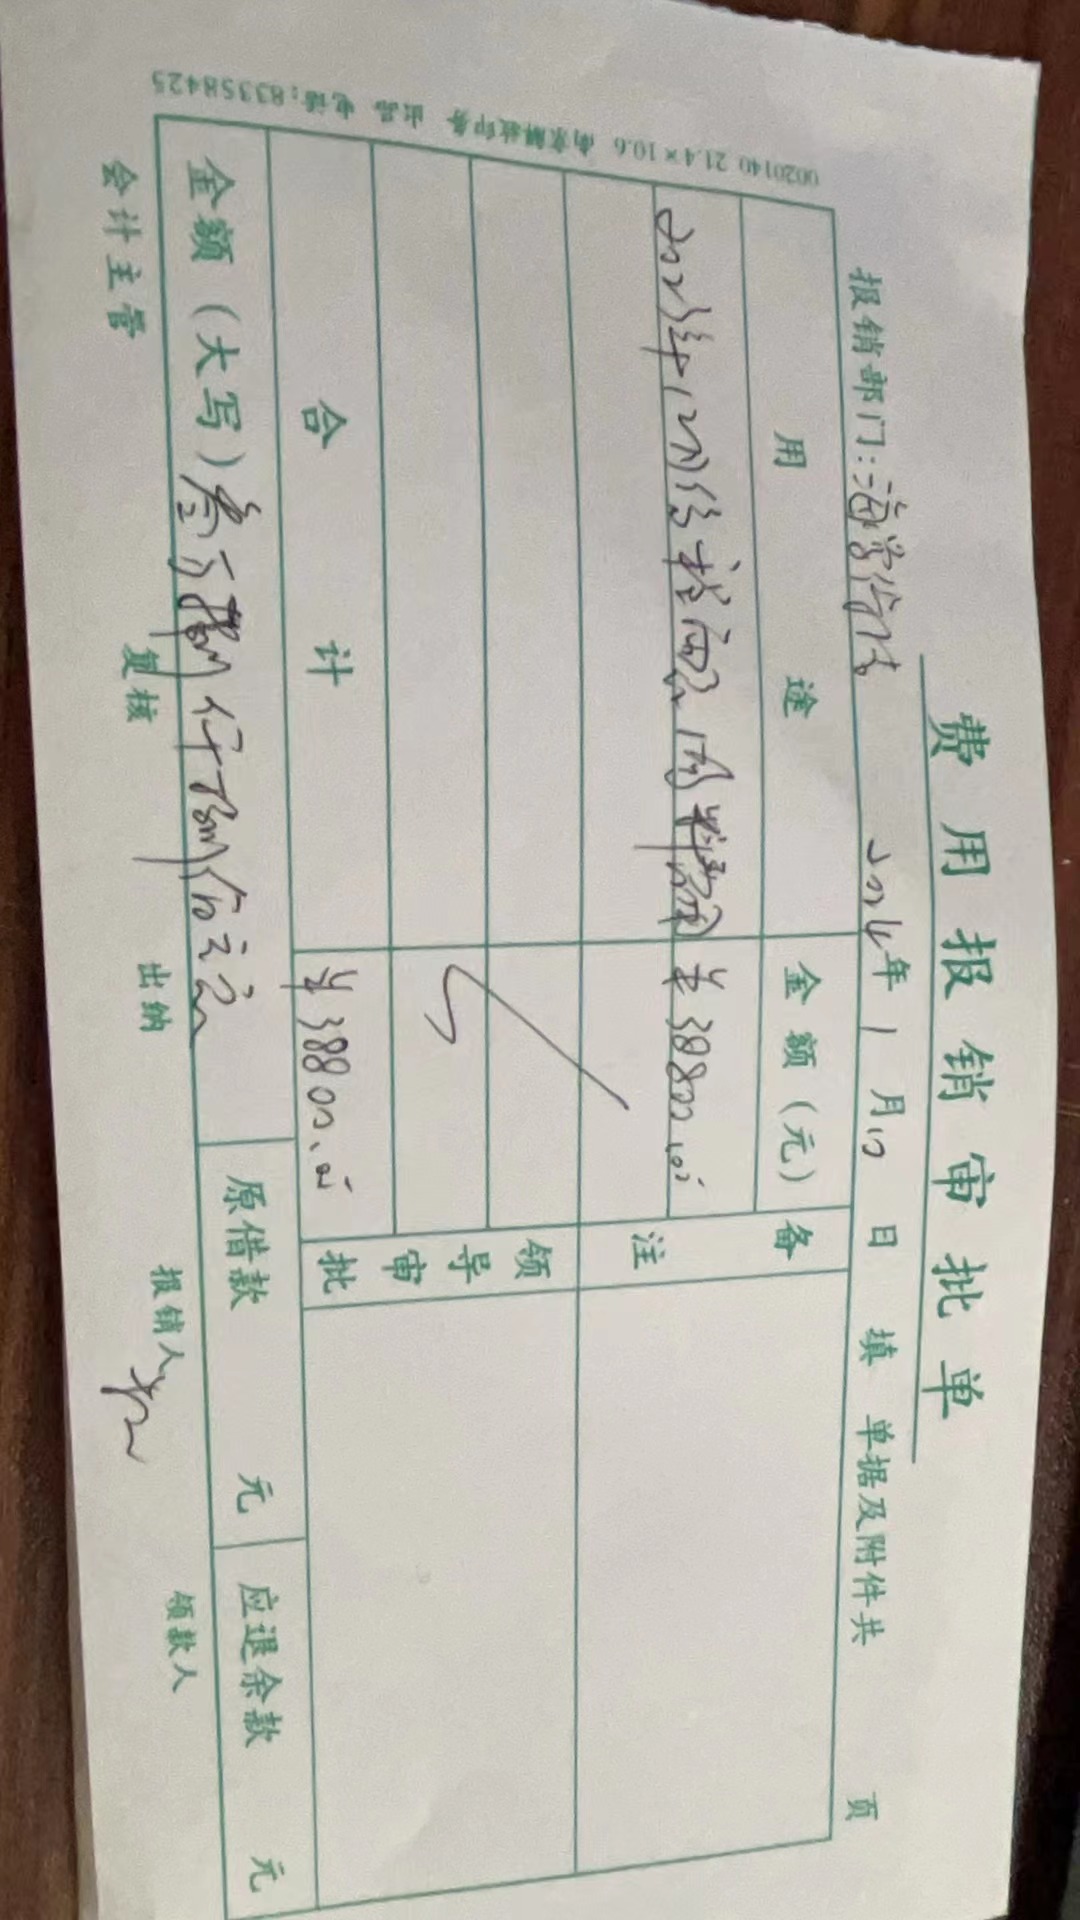 费用报销审批单
报销部门: 2024年1月10日 填 单据及附件共 页
用途 金额(元) 备注
2023年12月份 ¥38800.00
合计 ¥38800.00 领导审批
金额(大写)叁万捌仟捌佰元 原借款 元 应退余款 元
会计主管 复核 出纳 报销人 领款人
0020140 21.4×10.6 南京解放印务 出品 电话:83358425